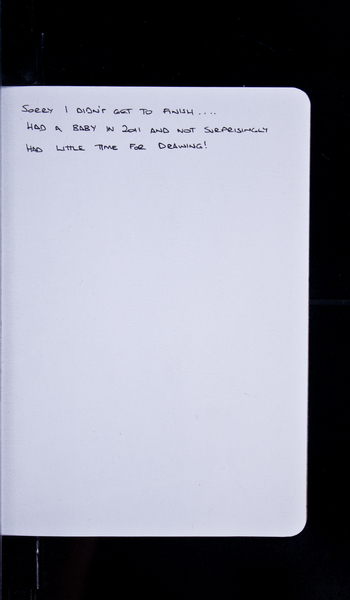 SORRY I DIDN'T GET TO FINISH....
HAD A BABY IN 2011 AND NOT SURPRISINGLY
HAD LITTLE TIME FOR DRAWING!